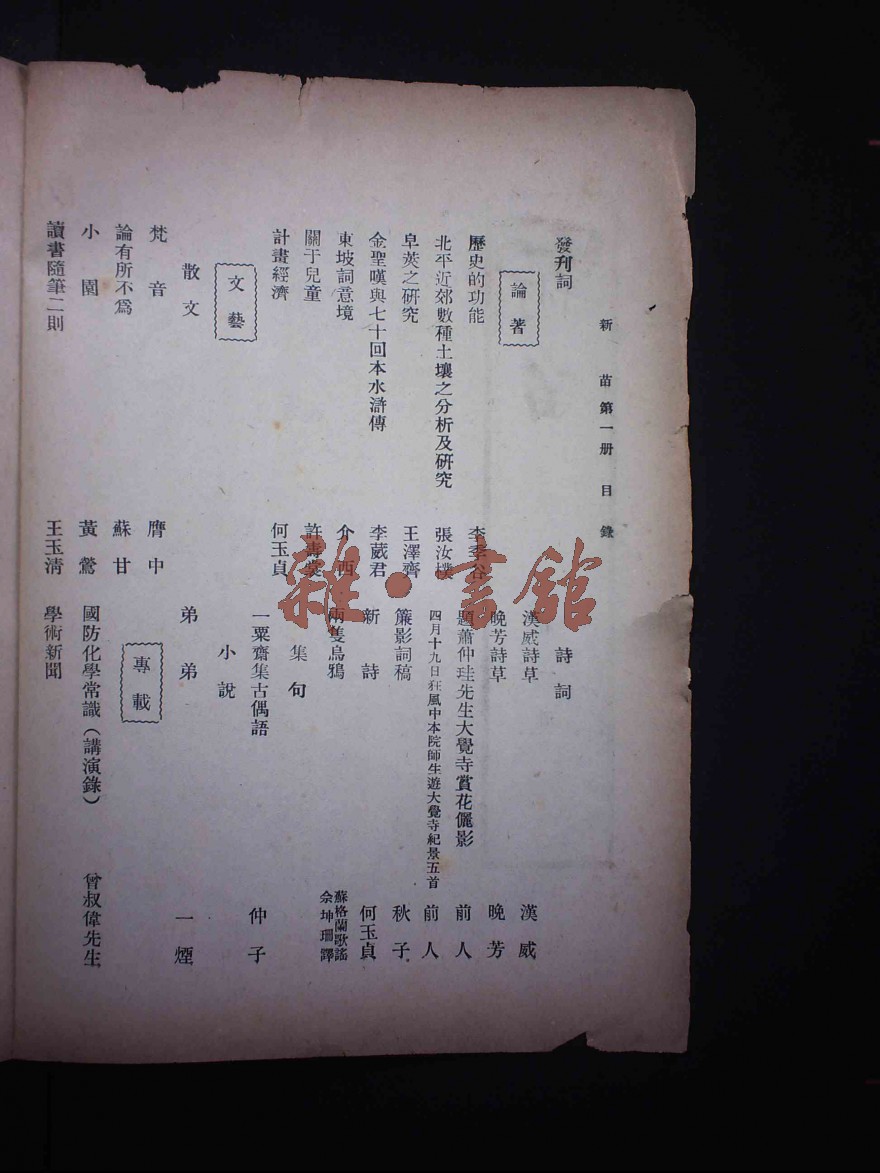 新苗第一册 目錄
發刊詞
論著
歷史的功能 李季谷
北平近郊數種土壤之分析及研究 張汝樸
皁莢之研究 王澤齊
金聖嘆與七十回本水滸傳 李葳君
東坡詞意境 介西
關于兒童 許壽裳
計畫經濟 何玉貞
文藝
散文
梵音 膺中
論有所不爲 蘇甘
小園 黃鶯
讀書隨筆二則 王玉清
詩詞
漢威詩草 漢威
晚芳詩草 晚芳
題蕭仲珪先生大覺寺賞花儷影 前人
四月十九日狂風中本院師生遊大覺寺紀景五首 前人
簾影詞稿 秋子
新詩 何玉貞
兩隻烏鴉 蘇格蘭歌謠 佘坤珊譯
集句
一粟齋集古偶語 仲子
小說
弟弟 一煙
專載
國防化學常識(講演錄) 曾叔偉先生
學術新聞
雜·書館